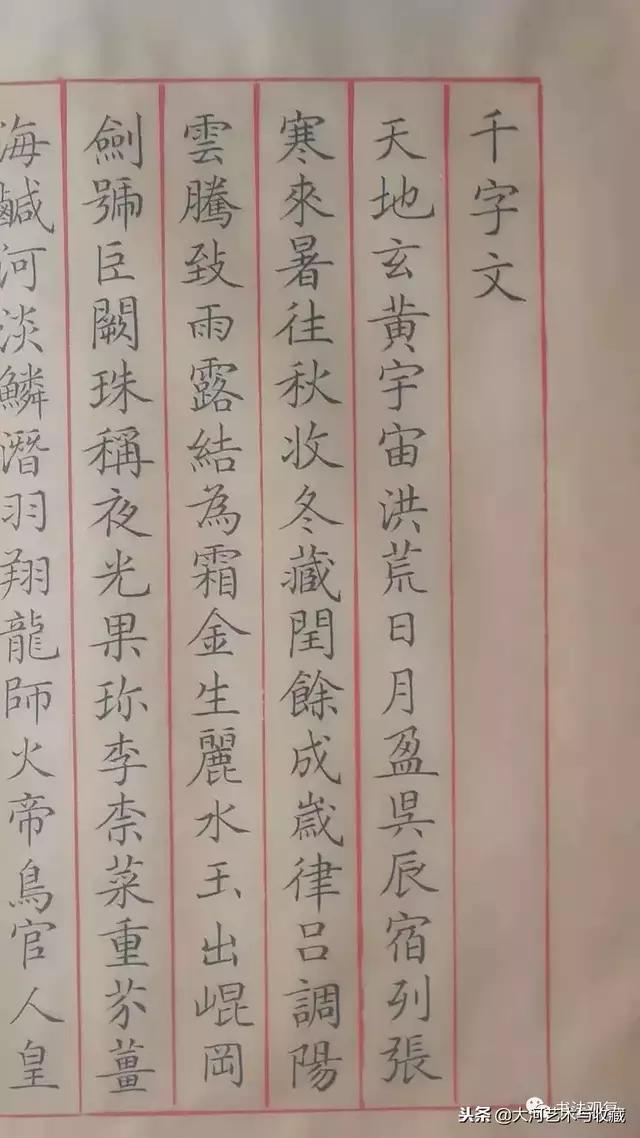 千字文
天地玄黄宇宙洪荒日月盈昃辰宿列張
寒來暑往秋收冬藏閏餘成歲律呂調陽
雲騰致雨露結為霜金生麗水玉出崐岡
劍號巨闕珠稱夜光果珎李柰菜重芥薑
海鹹河淡鱗潛羽翔龍師火帝鳥官人皇
书法观复
头条 @大河艺术与收藏